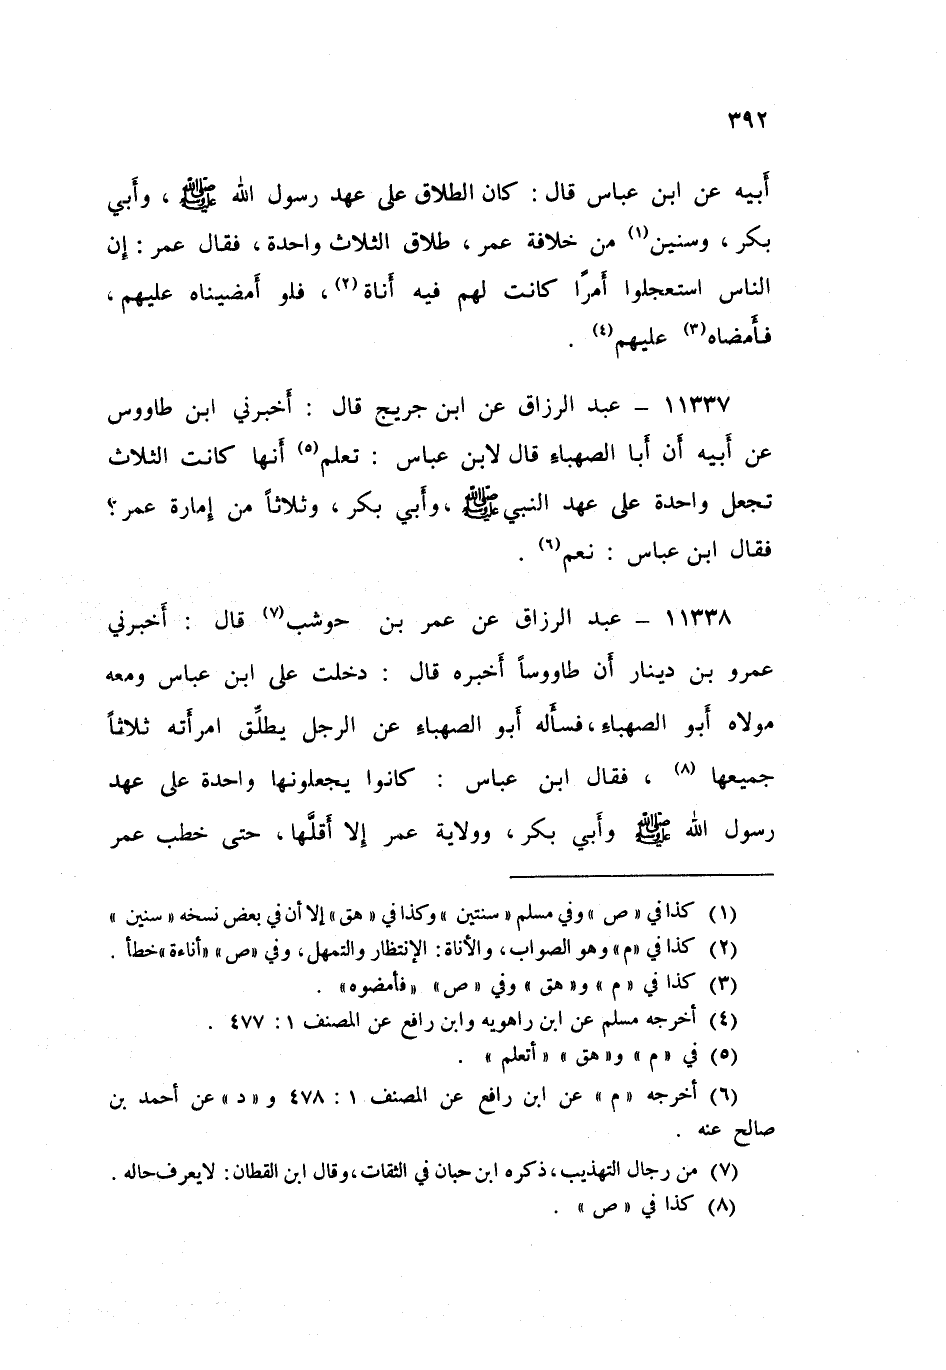 ٣٩٢
أَبيه عن ابن عباس قال : كان الطلاق على عهد رسول الله ﷺ ، وأَبي
بكر ، وسنين(١) من خلافة عمر ، طلاق الثلاث واحدة ، فقال عمر : إن
الناس استعجلوا أَمرًا كانت لهم فيه أَناة(٢) ، فلو أَمضيناه عليهم ،
فأَمضاه(٣) عليهم(٤) .
١١٣٣٧ – عبد الرزاق عن ابن جريج قال : أَخبرني ابن طاووس
عن أَبيه أَن أَبا الصهباء قال لابن عباس : تعلم(٥) أَنها كانت الثلاث
تجعل واحدة على عهد النبي ﷺ ، وأَبي بكر ، وثلاثاً من إمارة عمر ؟
فقال ابن عباس : نعم(٦) .
١١٣٣٨ – عبد الرزاق عن عمر بن حوشب(٧) قال : أَخبرني
عمرو بن دينار أَن طاووساً أَخبره قال : دخلت على ابن عباس ومعه
مولاه أَبو الصهباء ، فسأَله أَبو الصهباء عن الرجل يطلِّق امرأَته ثلاثاً
جميعها (٨) ، فقال ابن عباس : كانوا يجعلونها واحدة على عهد
رسول الله ﷺ وأَبي بكر ، وولاية عمر إلا أَقلَّها ، حتى خطب عمر
(١) كذا في « ص » وفي مسلم « سنتين » وكذا في « هق » إلا أن في بعض نسخه « سنين »
(٢) كذا في « م » وهو الصواب ، والأناة : الإنتظار والتمهل ، وفي « ص » « أناءة » خطأ .
(٣) كذا في « م » و« هق » وفي « ص » « فأمضوه » .
(٤) أخرجه مسلم عن ابن راهويه وابن رافع عن المصنف ١ : ٤٧٧ .
(٥) في « م » و« هق » « أتعلم » .
(٦) أخرجه « م » عن ابن رافع عن المصنف ١ : ٤٧٨ و « د » عن أحمد بن
صالح عنه .
(٧) من رجال التهذيب ، ذكره ابن حبان في الثقات ، وقال ابن القطان : لا يعرف حاله .
(٨) كذا في « ص » .